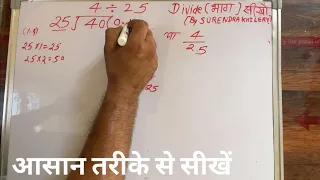 4 ÷ 25 Divide (भाग) सीखें
(By SURENDRA KHILERY)
(1-9) 25 ) 40 ( 0. या 4/25
25×1=25
25×2=50
25
आसान तरीके से सीखें